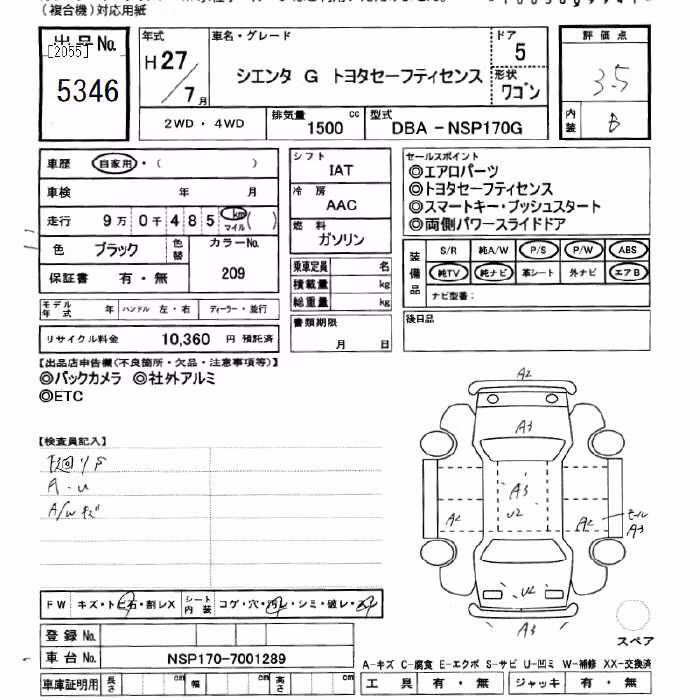 (複合機)対応用紙
出品No.
[2055]
5346
年式
H27
/7月
車名・グレード
シエンタ G トヨタセーフティセンス
ドア
5
形状
ワゴン
評価点
3.5
内装
B
2WD・4WD
排気量
1500 cc
型式
DBA-NSP170G
車歴 自家用・( )
車検 年 月
走行 9万0千485 km マイル ( )
色 ブラック 色替
カラーNo.
209
保証書 有・無
シフト
IAT
冷房
AAC
燃料
ガソリン
乗車定員 名
積載量 kg
総重量 kg
書類期限
月 日
セールスポイント
◎エアロパーツ
◎トヨタセーフティセンス
◎スマートキー・プッシュスタート
◎両側パワースライドドア
装備品
S/R 純A/W P/S P/W ABS
純TV 純ナビ 革シート 外ナビ エアB
ナビ型番:
後日品
モデル年式 年 ハンドル 左・右 ディーラー・並行
リサイクル料金 10,360 円 預託済
【出品店申告欄(不良箇所・欠品・注意事項等)】
◎バックカメラ ◎社外アルミ
◎ETC
【検査員記入】
A-U
A/Wキズ
A2
A3
A3
U2
A2
A2
モール
A3
U2
A3
スペア
FW キズ・トビ石・割レX
シート内装 コゲ・穴・汚レ・シミ・破レ・スレ
登録No.
車台No. NSP170-7001289
車庫証明用 長さ cm 幅 cm 高さ cm
A-キズ C-腐食 E-エクボ S-サビ U-凹ミ W-補修 XX-交換済
工具 有・無 ジャッキ 有・無